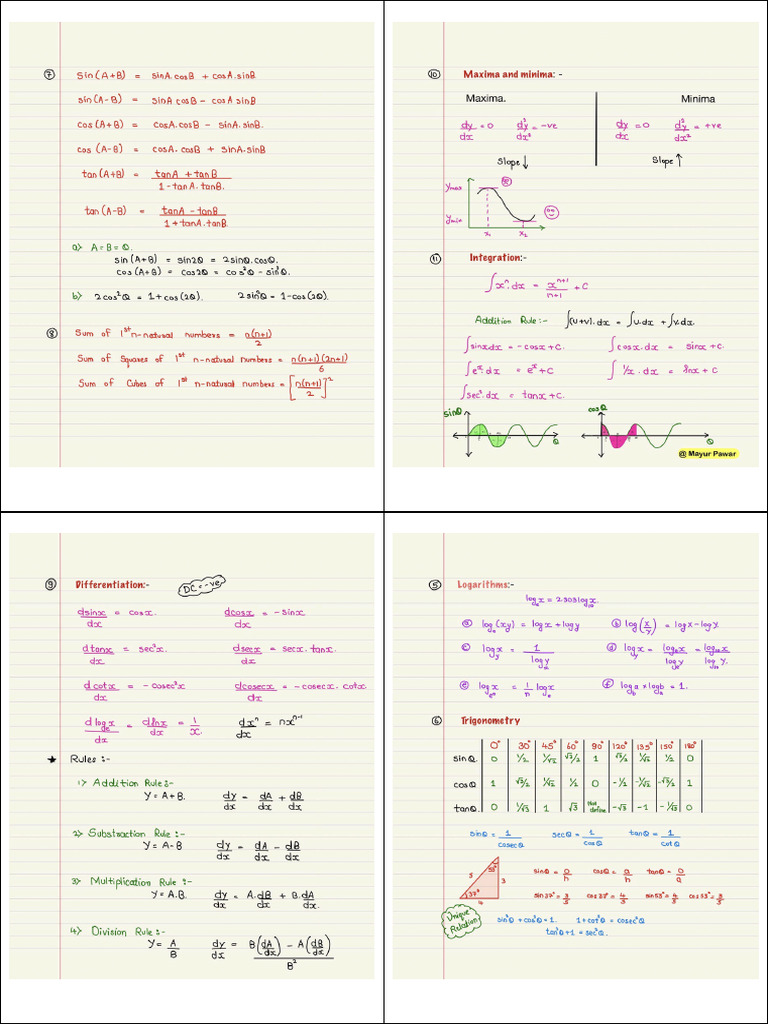 ⑦ Sin(A+B) = sinA.cosB + cosA.sinB
sin(A-B) = sinA cosB - cosA sinB
cos(A+B) = cosA.cosB - sinA.sinB.
cos(A-B) = cosA.cosB + sinA.sinB
tan(A+B) = tanA + tanB / 1-tanA.tanB.
tan(A-B) = tanA - tanB / 1+tanA.tanB
a) A=B=Q.
sin(A+B) = sin2Q = 2sinQ.cosQ.
cos(A+B) = cos2Q = cos²Q - sin²Q.
b) 2cos²Q = 1+cos(2Q). 2sin²Q = 1-cos(2Q).
⑧ Sum of 1st n-natural numbers = n(n+1)/2
Sum of Squares of 1st n-natural numbers = n(n+1)(2n+1)/6
Sum of Cubes of 1st n-natural numbers = [n(n+1)/2]²
⑩ Maxima and minima: -
Maxima. Minima
dy/dx = 0 d²y/dx² = -ve dy/dx = 0 d²y/dx² = +ve
Slope ↓ Slope ↑
ymax
ymin
x₁ x₂
⑪ Integration:-
∫xⁿ.dx = xⁿ⁺¹/n+1 + C
Addition Rule:- ∫(u+v).dx = ∫u.dx + ∫v.dx.
∫sinxdx = -cosx+C. ∫cosx.dx = sinx+C.
∫eˣ.dx = eˣ+C ∫1/x.dx = lnx+C
∫sec².dx = tanx+C.
sinQ cosQ
Q Q
@ Mayur Pawar
⑨ Differentiation:- DC = -ve
dsinx/dx = cosx. dcosx/dx = -sinx
dtanx/dx = sec²x. dsecx/dx = secx.tanx.
dcotx/dx = -cosec²x dcosecx/dx = -cosecx.cotx
dlogₑx/dx = dlnx/dx = 1/x. dxⁿ/dx = nxⁿ⁻¹
★ Rules :-
1) Addition Rule:-
Y = A+B. dy/dx = dA/dx + dB/dx
2) Substraction Rule :-
Y = A-B dy/dx = dA/dx - dB/dx
3) Multiplication Rule :-
Y = A.B. dy/dx = A.dB/dx + B.dA/dx.
4) Division Rule :-
Y = A/B dy/dx = B(dA/dx) - A(dB/dx) / B²
⑤ Logarithms:-
logₑx = 2.303log₁₀x.
ⓐ logₑ(xy) = logx + logy ⓑ log(x/y) = logx-logy
ⓒ logᵧx = 1/logₓy ⓓ logᵧx = logₑx/logₑy = log₁₀x/log₁₀y.
ⓔ logx = 1/n logx ⓕ log b × log a = 1.
⑥ Trigonometry
0° 30° 45° 60° 90° 120° 135° 150° 180°
sinQ. 0 1/2 1/√2 √3/2 1 √3/2 1/√2 1/2 0
cosQ 1 √3/2 1/√2 1/2 0 -1/2 -1/√2 -√3/2 1
tanQ. 0 1/√3 1 √3 Not define -√3 -1 -1/√3 0
sinQ = 1/cosecQ secQ = 1/cosQ tanQ = 1/cotQ
5 53° 3 37° 4
sinQ = O/h cosQ = a/h tanQ = O/a
Unique Relation
sin²Q + cos²Q = 1. 1+cot²Q = cosec²Q
tan²Q+1 = sec²Q.